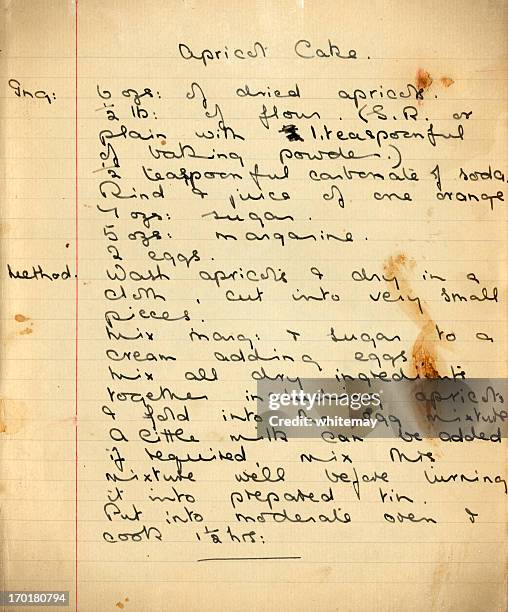 Apricot Cake.
Ing: 6 ozs: of dried apricots.
½ lb: of flour. (S.R. or
plain with 1. teaspoonful
of baking powder.)
½ teaspoonful carbonate of soda.
Rind & juice of one orange
4 ozs: sugar.
5 ozs: margarine.
2 eggs.
Method. Wash apricots & dry in a
cloth, cut into very small
pieces.
Mix marg: & sugar to a
cream adding eggs
Mix all dry ingredients
together apricots
& fold into egg mixture
A little milk can be added
if required, mix this
mixture well before turning
it into prepared tin.
Put into moderate oven &
cook 1½ hrs:
gettyimages
whitemay
170180794